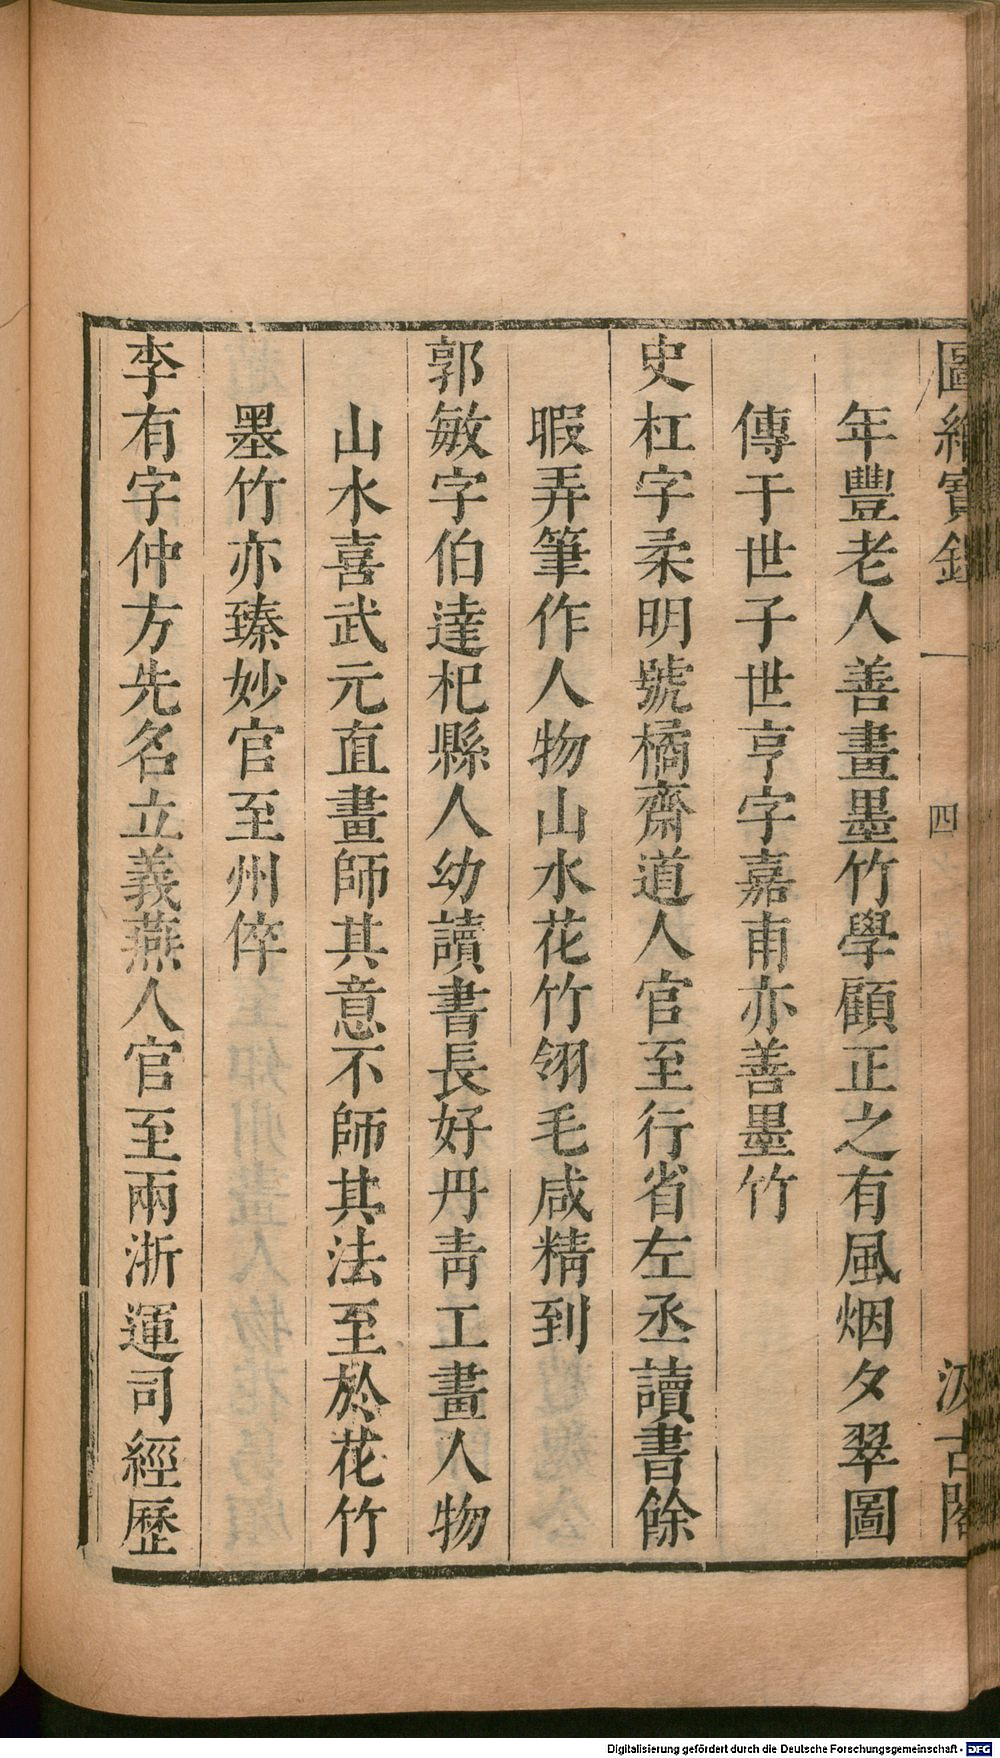 圖繪寶鑑 一 四 汲古閣
年豐老人善畫墨竹學顧正之有風烟夕翠圖
傳于世子世亨字嘉甫亦善墨竹
史杠字柔明號橘齋道人官至行省左丞讀書餘
暇弄筆作人物山水花竹翎毛咸精到
郭敏字伯達杞縣人幼讀書長好丹青工畫人物
山水喜武元直畫師其意不師其法至於花竹
墨竹亦臻妙官至州倅
李有字仲方先名立義燕人官至兩浙運司經歷
Digitalisierung gefördert durch die Deutsche Forschungsgemeinschaft - DFG